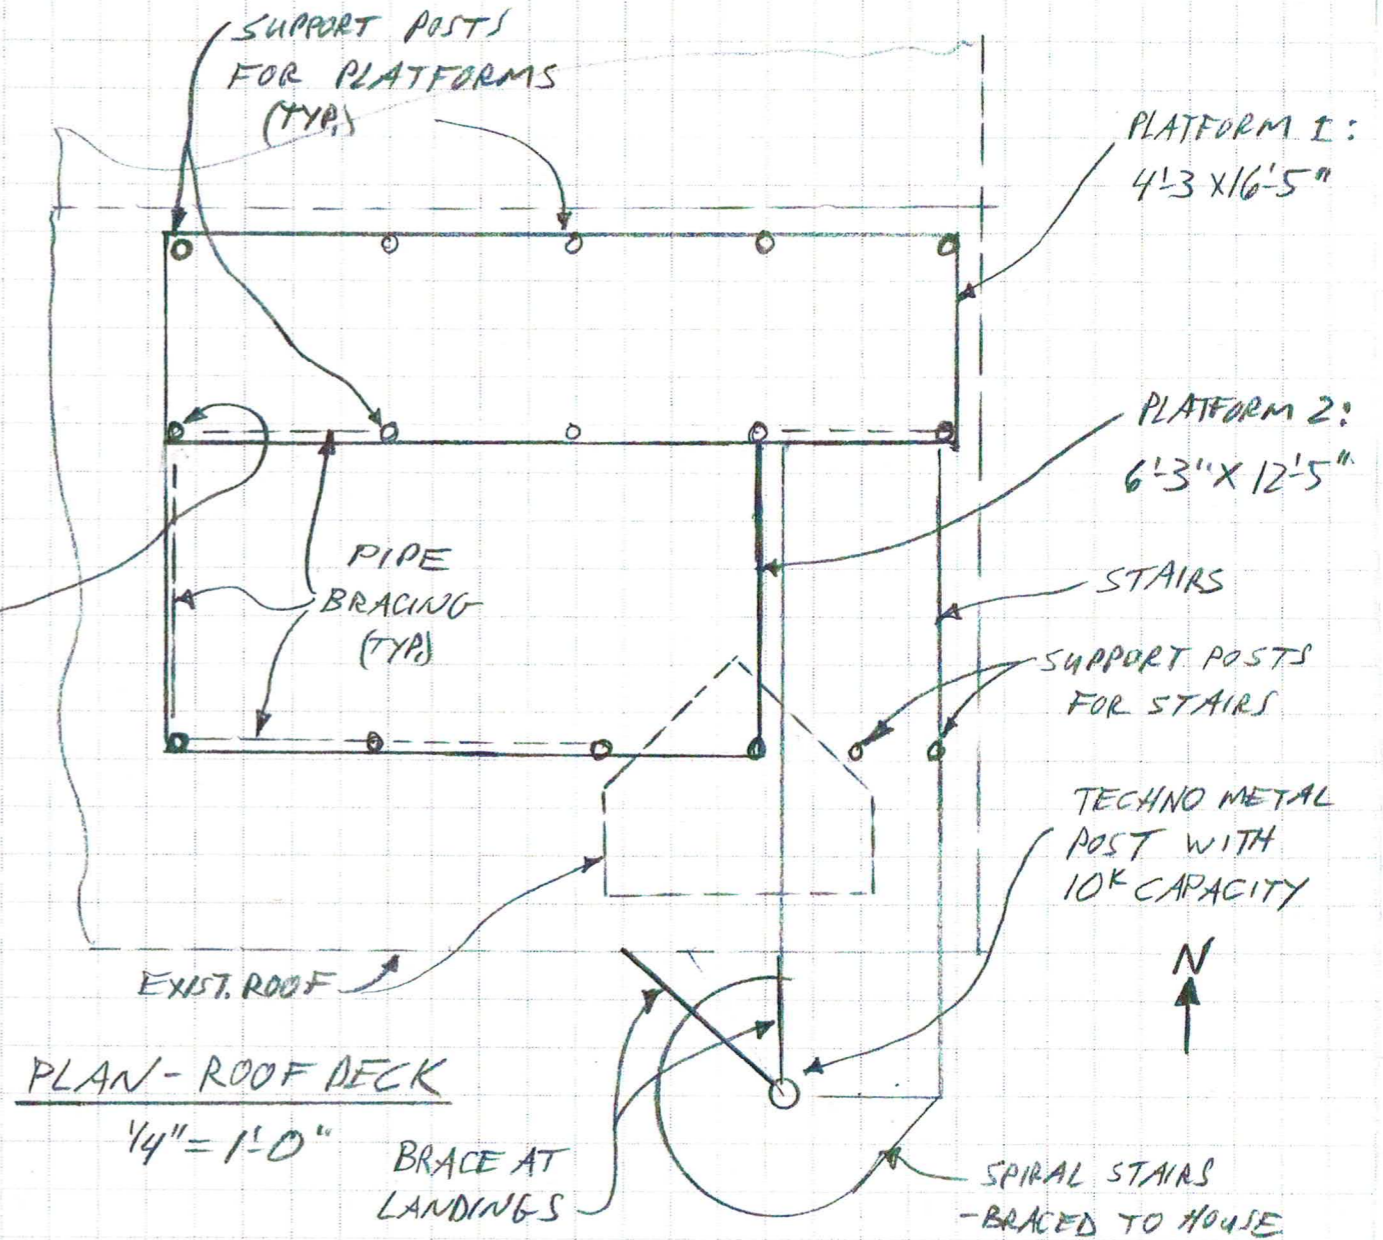 SUPPORT POSTS
FOR PLATFORMS
(TYP.)
PLATFORM 1:
4'-3 X 16'-5"
PLATFORM 2:
6'-3" X 12'-5"
PIPE
BRACING
(TYP.)
STAIRS
SUPPORT POSTS
FOR STAIRS
TECHNO METAL
POST WITH
10K CAPACITY
N
EXIST. ROOF
PLAN - ROOF DECK
1/4" = 1'-0"
BRACE AT
LANDINGS
SPIRAL STAIRS
-BRACED TO HOUSE